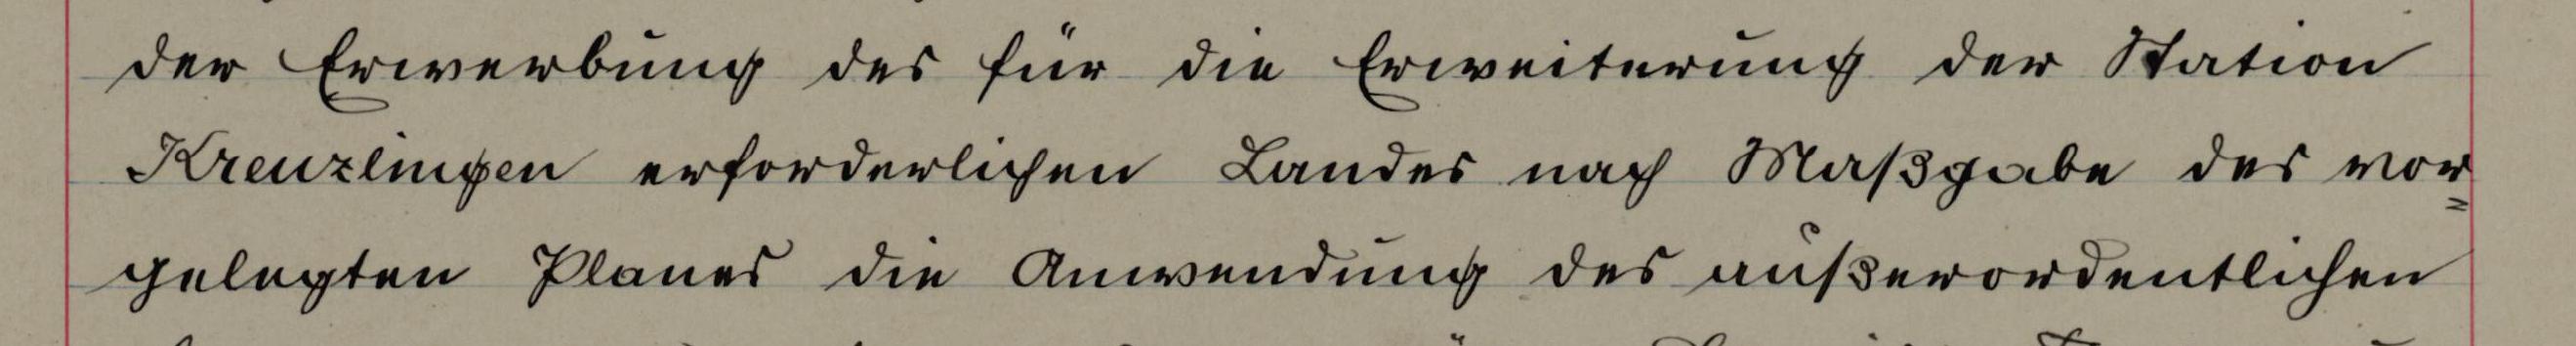 der Erwerbung des für die Erweiterung der Station
Kreuzlingen erforderlichen Landes nach Maßgabe des vor=
gelegten Planes die Anwendung des außerordentlichen